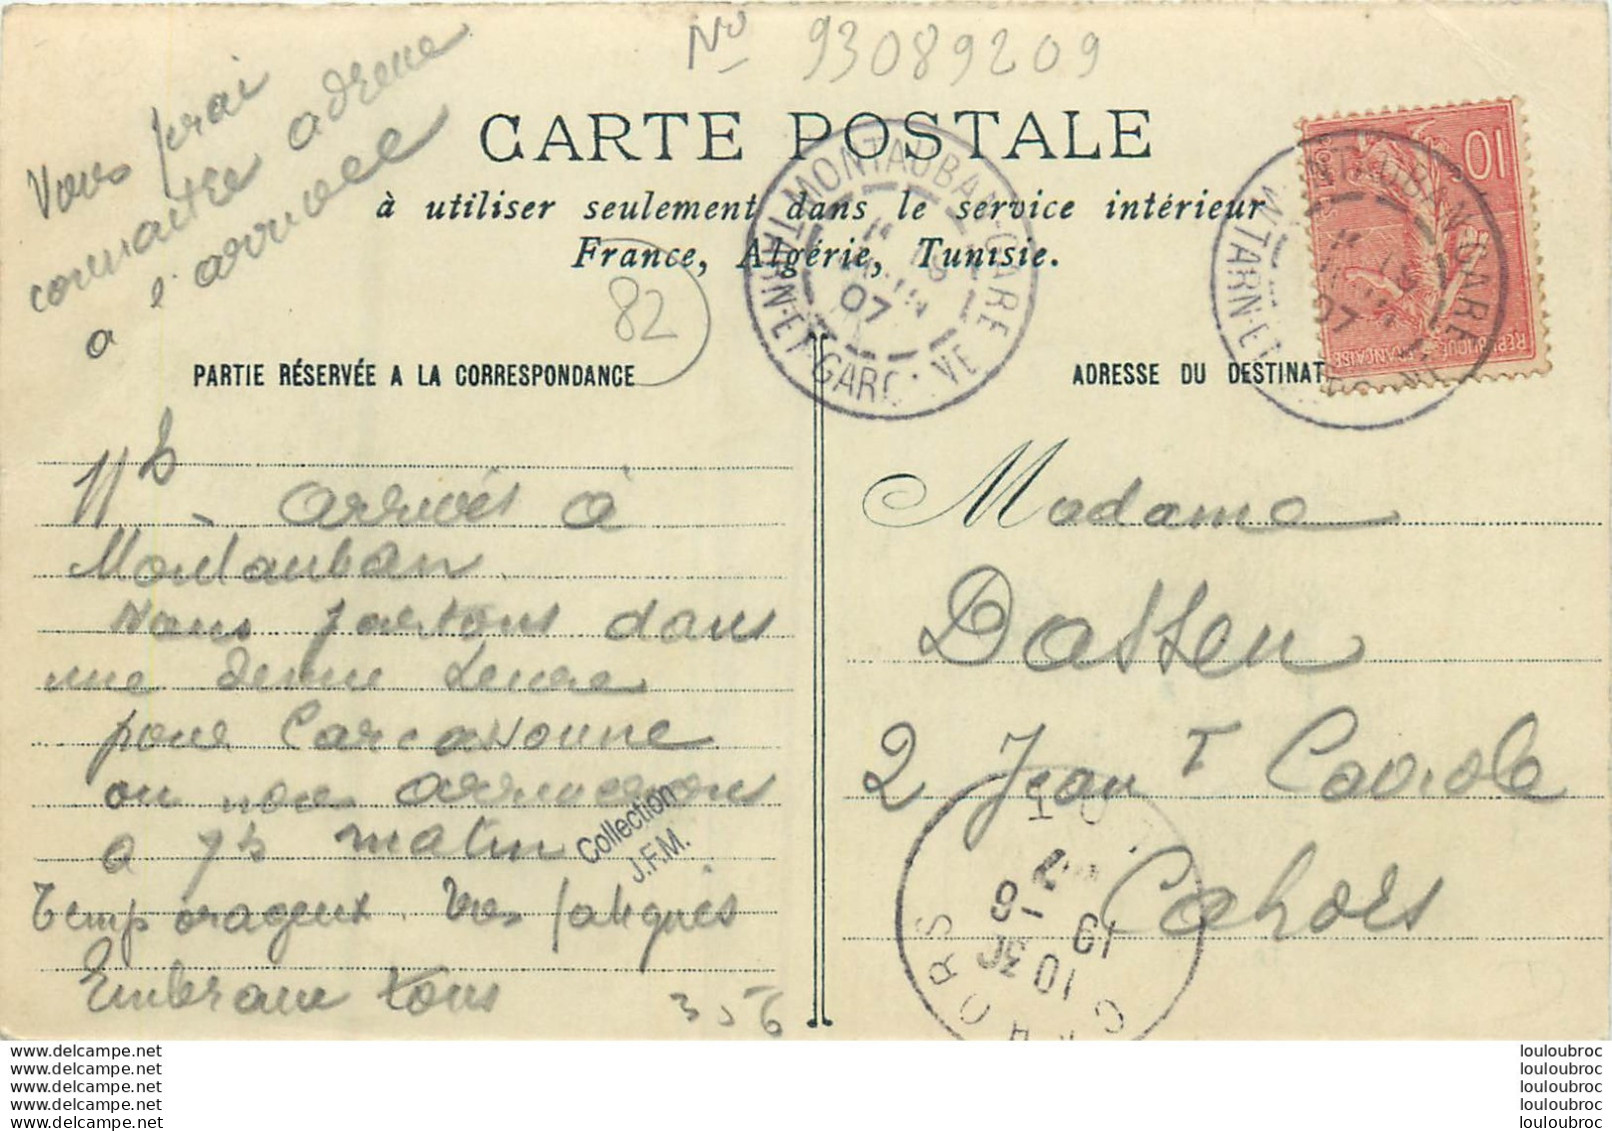 No 93089209
Vous ferai
connaitre adresse
a l'arrivee
CARTE POSTALE
à utiliser seulement dans le service intérieur
France, Algérie, Tunisie.
82
MONTAUBAN-GARE
TARN-ET-GARONNE
07
10
REPUBLIQUE FRANÇAISE
PARTIE RÉSERVÉE A LA CORRESPONDANCE
ADRESSE DU DESTINAT
11h arrivés à
Montauban
Nous partons dans
une demie heure
pour Carcassonne
ou nous arriverons
a 7h matin
Temp orageux. Tres fatigués
Embrasse tous
Collection
J.F.M.
356
Madame
Dasseu
2 Jean T Caviole
Cahors
CAHORS
LOT
10 30
www.delcampe.net
www.delcampe.net
www.delcampe.net
www.delcampe.net
www.delcampe.net
louloubroc
louloubroc
louloubroc
louloubroc
louloubroc